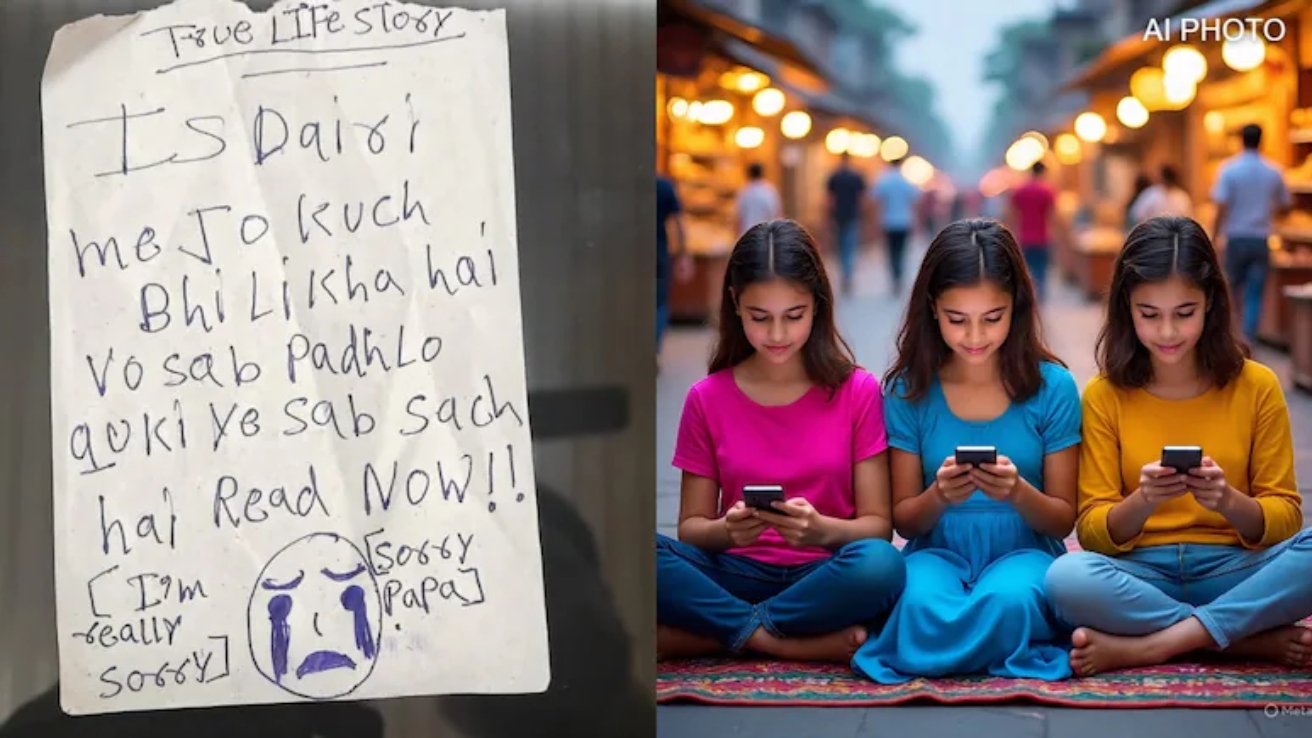 True LIFe story
Is Dairi
me Jo kuch
Bhi Likha hai
Vo sab Padh Lo
quki ye sab sach
hai Read NOW!!
[I'm
really
sorry]
[sorry
Papa]
AI PHOTO
Meta